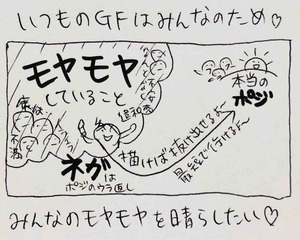 いつものGFはみんなのため♡
モヤモヤ
していること
違和感
実は
不満
ネガは
ポジのウラ返し
描けば抜け出せるよ〜
最短で行けるよ〜
本当の
ポジ
みんなのモヤモヤを晴らしたい♡